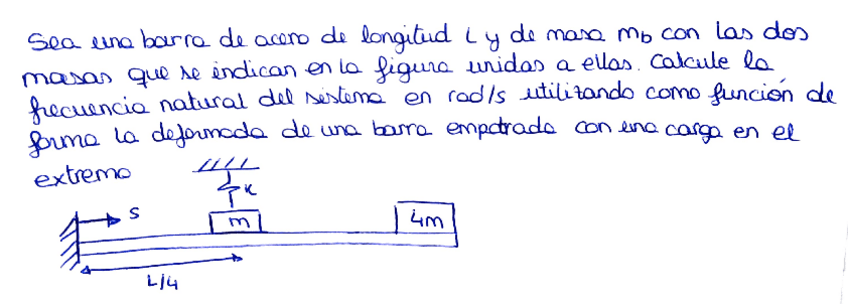 Sea una barra de acero de longitud L y de masa mb con las dos
masas que se indican en la figura unidas a ellas. Calcule la
frecuencia natural del sistema en rad/s utilizando como función de
forma la deformada de una barra empotrada con una carga en el
extremo
K
S
m
4m
L/4